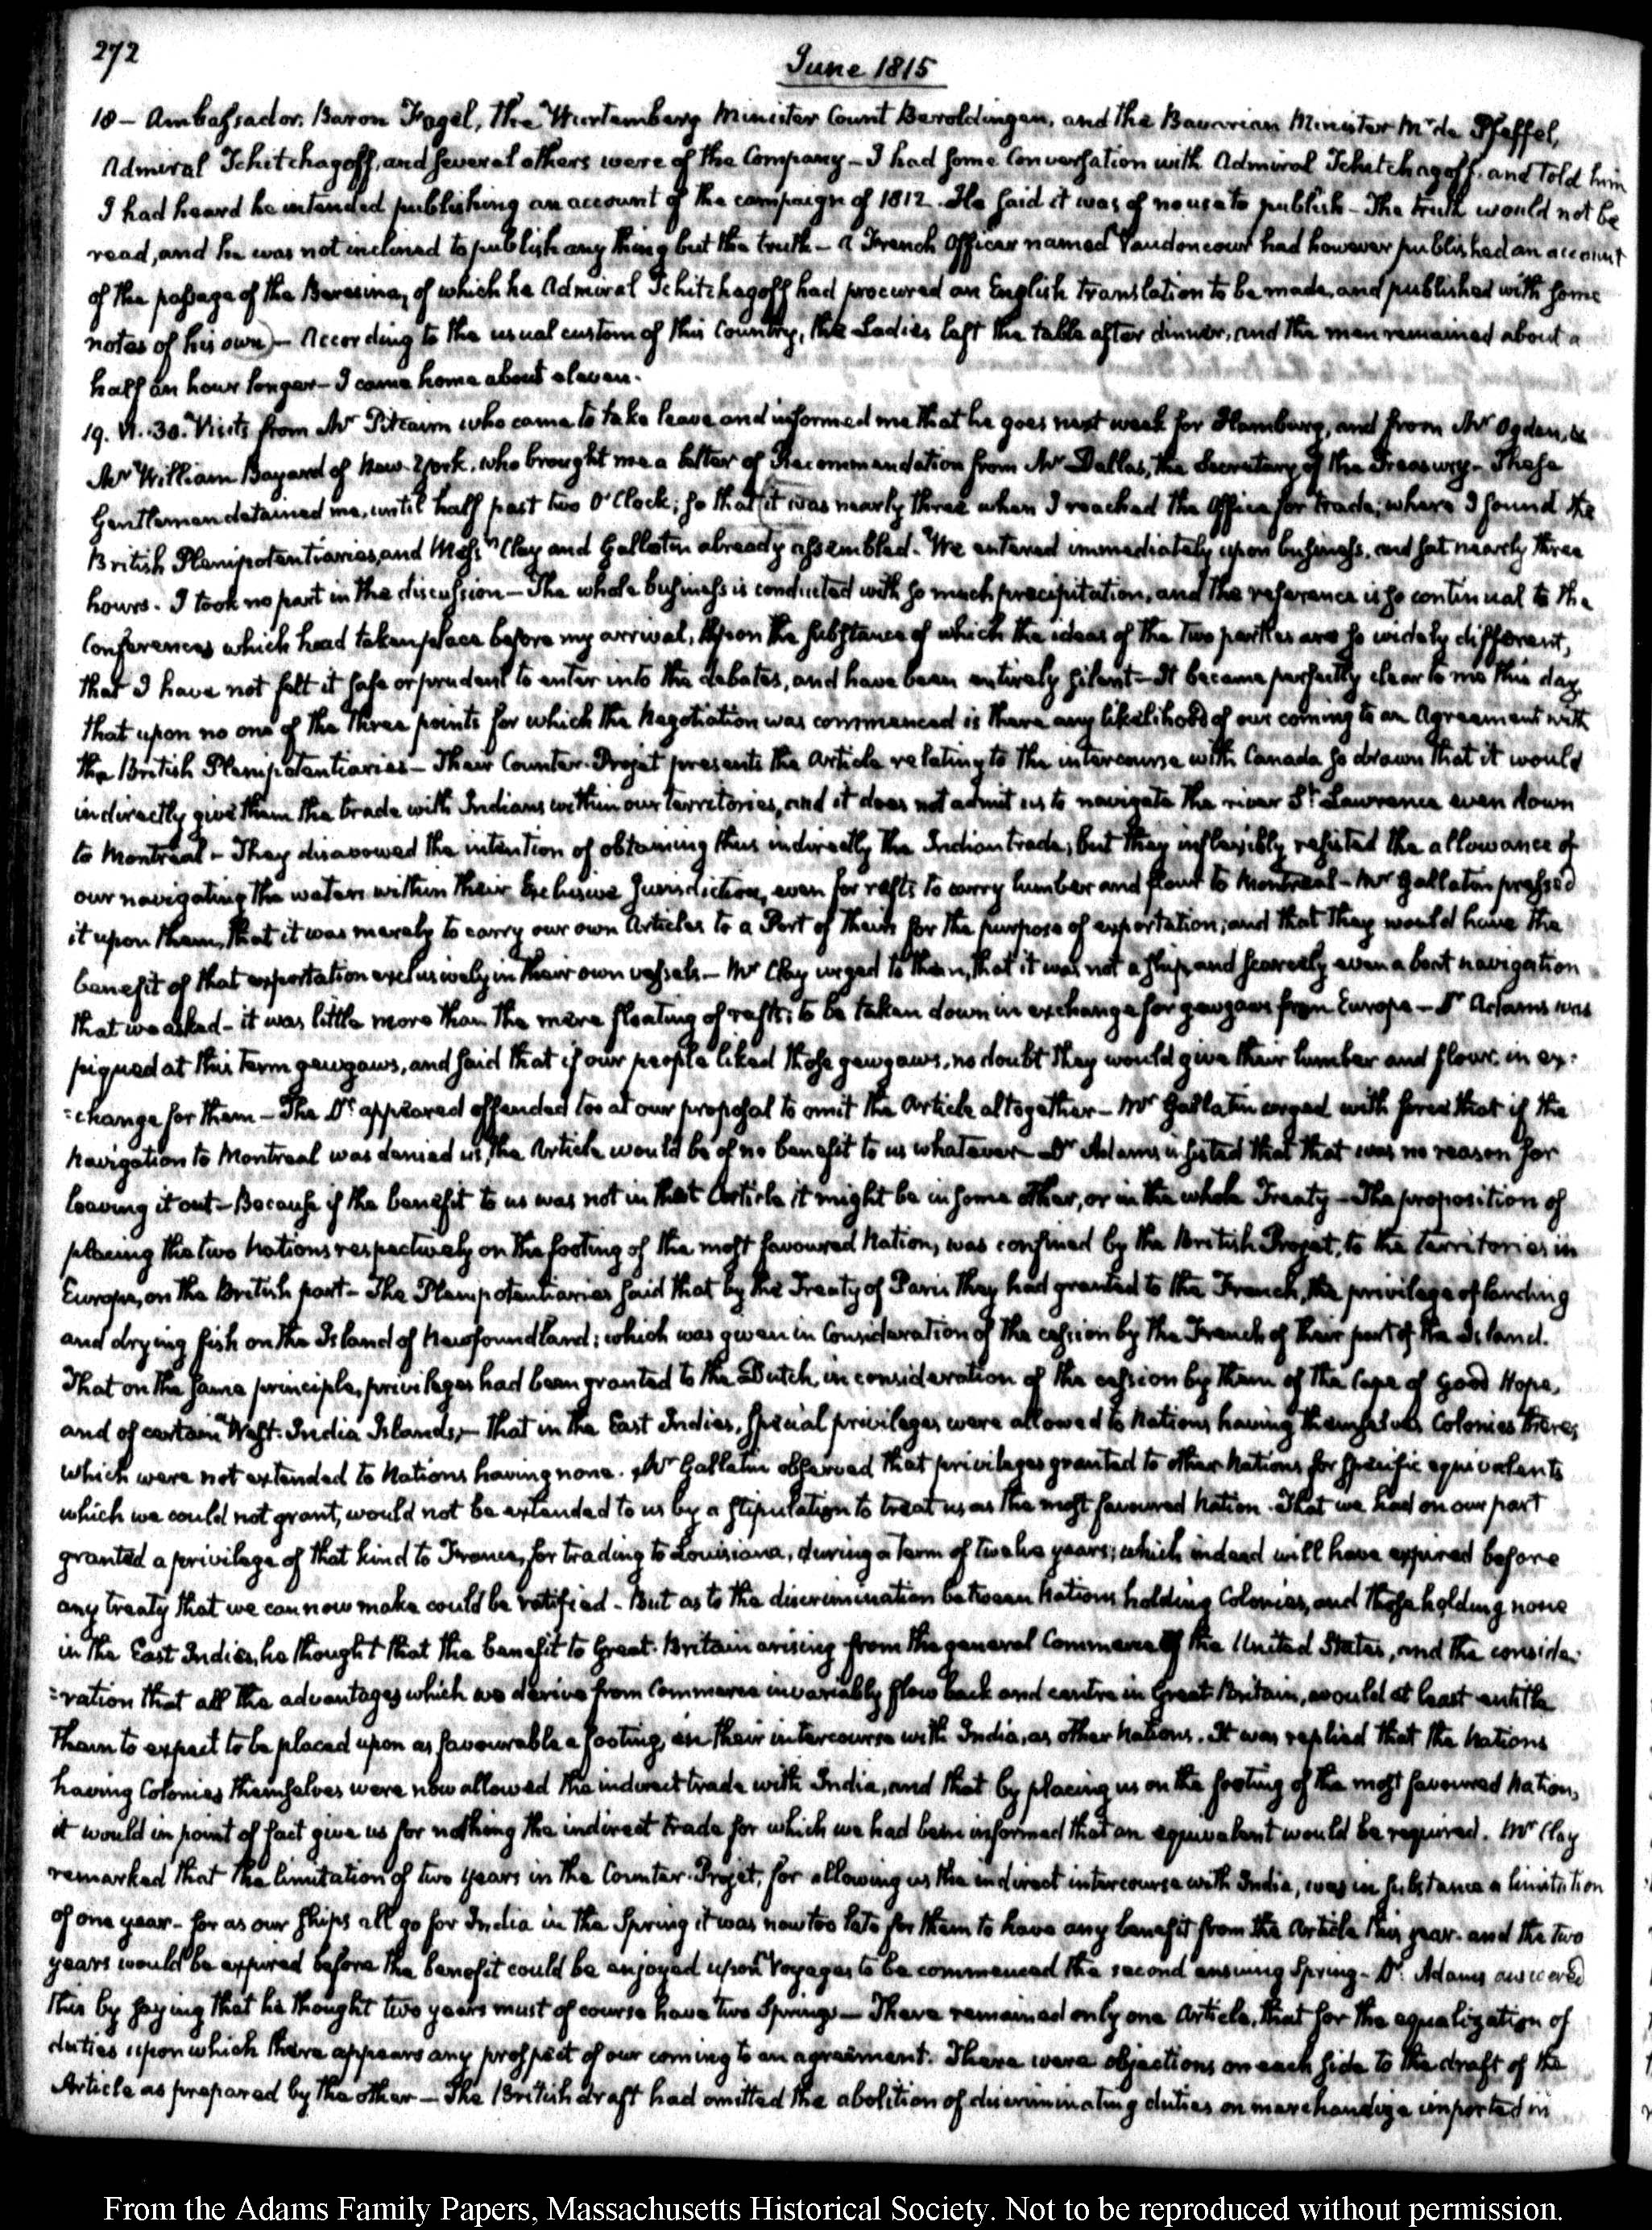 272
June 1815
18 — Ambassador. Baron Fagel, the Wurtemberg Minister Count Beroldingen, and the Bavarian Minister Mr. de Pfeffel,
Admiral Tchitchagoff, and several others were of the Company — I had some Conversation with Admiral Tchitchagoff, and told him
I had heard he intended publishing an account of the campaign of 1812. He said it was of no use to publish — The truth would not be
read, and he was not inclined to publish any thing but the truth — A French Officer named Vaudoncour had however published an account
of the passage of the Beresina, of which he Admiral Tchitchagoff had procured an English translation to be made, and published with some
notes of his own) — According to the usual custom of this Country, the Ladies left the table after dinner, and the men remained about a
half an hour longer — I came home about eleven.
19. VI. 30. Visits from Mr Pitcairn who came to take leave and informed me that he goes next week for Hamburg, and from Mr Ogden, &
Mr William Bayard of New-York, who brought me a letter of Recommendation from Mr Dallas, the Secretary of the Treasury — These
Gentlemen detained me, until half past two O'Clock; so that it was nearly three when I reached the Office for trade; where I found the
British Plenipotentiaries, and Messrs Clay and Gallatin already assembled. We entered immediately upon business, and sat nearly three
hours. I took no part in the discussion — The whole business is conducted with so much precipitation, and the reference is so continual to the
Conferences which had taken place before my arrival, upon the substance of which the ideas of the two parties are so widely different,
that I have not felt it safe or prudent to enter into the debates, and have been entirely silent — It became perfectly clear to me this day
that upon no one of the three points for which the Negotiation was commenced is there any likelihood of our coming to an Agreement with
the British Plenipotentiaries — Their Counter-Projet presents the Article relating to the intercourse with Canada so drawn that it would
indirectly give them the trade with Indians within our territories, and it does not admit us to navigate the river St Lawrence even down
to Montreal — They disavowed the intention of obtaining thus indirectly the Indian trade; but they inflexibly resisted the allowance of
our navigating the waters within their Exclusive Jurisdiction, even for rafts to carry lumber and flour to Montreal — Mr Gallatin press'd
it upon them, that it was merely to carry our own Articles to a Port of theirs for the purpose of exportation; and that they would have the
benefit of that exportation exclusively in their own vessels — Mr Clay urged to them, that it was not a ship and scarcely even a boat navigation
that we asked — it was little more than the mere floating of rafts: to be taken down in exchange for gewgaws from Europe — Dr Adams was
piqued at this term gewgaws, and said that if our people liked those gewgaws, no doubt they would give their lumber and flour in ex:
:change for them — The Dr appeared offended too at our proposal to omit the Article altogether — Mr Gallatin urged with force that if the
navigation to Montreal was denied us, the Article would be of no benefit to us whatever — Dr Adams insisted that that was no reason for
leaving it out — Because if the benefit to us was not in that Article it might be in some other, or in the whole Treaty — The proposition of
placing the two Nations respectively on the footing of the most favoured Nation, was confined by the British Projet, to the territories in
Europe, on the British part — The Plenipotentiaries said that by the Treaty of Paris they had granted to the French, the privilege of landing
and drying fish on the Island of Newfoundland: which was given in Consideration of the cession by the French of their part of the Island.
That on the same principle, privileges had been granted to the Dutch, in consideration of the cession by them of the Cape of Good Hope,
and of certain West-India Islands; — that in the East Indies, special privileges were allowed to Nations having themselves Colonies there,
which were not extended to Nations having none. Mr Gallatin observed that privileges granted to other Nations for specific equivalents
which we could not grant, would not be extended to us by a stipulation to treat us as the most favoured Nation. That we had on our part
granted a privilege of that kind to France, for trading to Louisiana, during a term of twelve years; which indeed will have expired before
any treaty that we can now make could be ratified — But as to the discrimination between Nations holding Colonies, and those holding none
in the East Indies, he thought that the benefit to Great-Britain arising from the general Commerce of the United States, and the conside:
:ration that all the advantages which we derive from Commerce invariably flow back and centre in Great Britain, would at least entitle
them to expect to be placed upon as favourable a footing, in their intercourse with India, as other Nations. It was replied that the Nations
having Colonies themselves were now allowed the indirect trade with India, and that by placing us on the footing of the most favoured Nation,
it would in point of fact give us for nothing the indirect trade for which we had been informed that an equivalent would be required. Mr Clay
remarked that the limitation of two years in the Counter-Projet, for allowing us the indirect intercourse with India, was in substance a limitation
of one year — for as our ships all go for India in the Spring it was now too late for them to have any benefit from the Article this year, and the two
years would be expired before the benefit could be enjoyed upon Voyages to be commenced the second ensuing Spring — Dr. Adams answered
this by saying that he thought two years must of course have two Springs — There remained only one Article, that for the equalization of
duties upon which there appears any prospect of our coming to an agreement. There were objections on each side to the draft of the
Article as prepared by the other — The British draft had omitted the abolition of discriminating duties on merchandize imported in
From the Adams Family Papers, Massachusetts Historical Society. Not to be reproduced without permission.